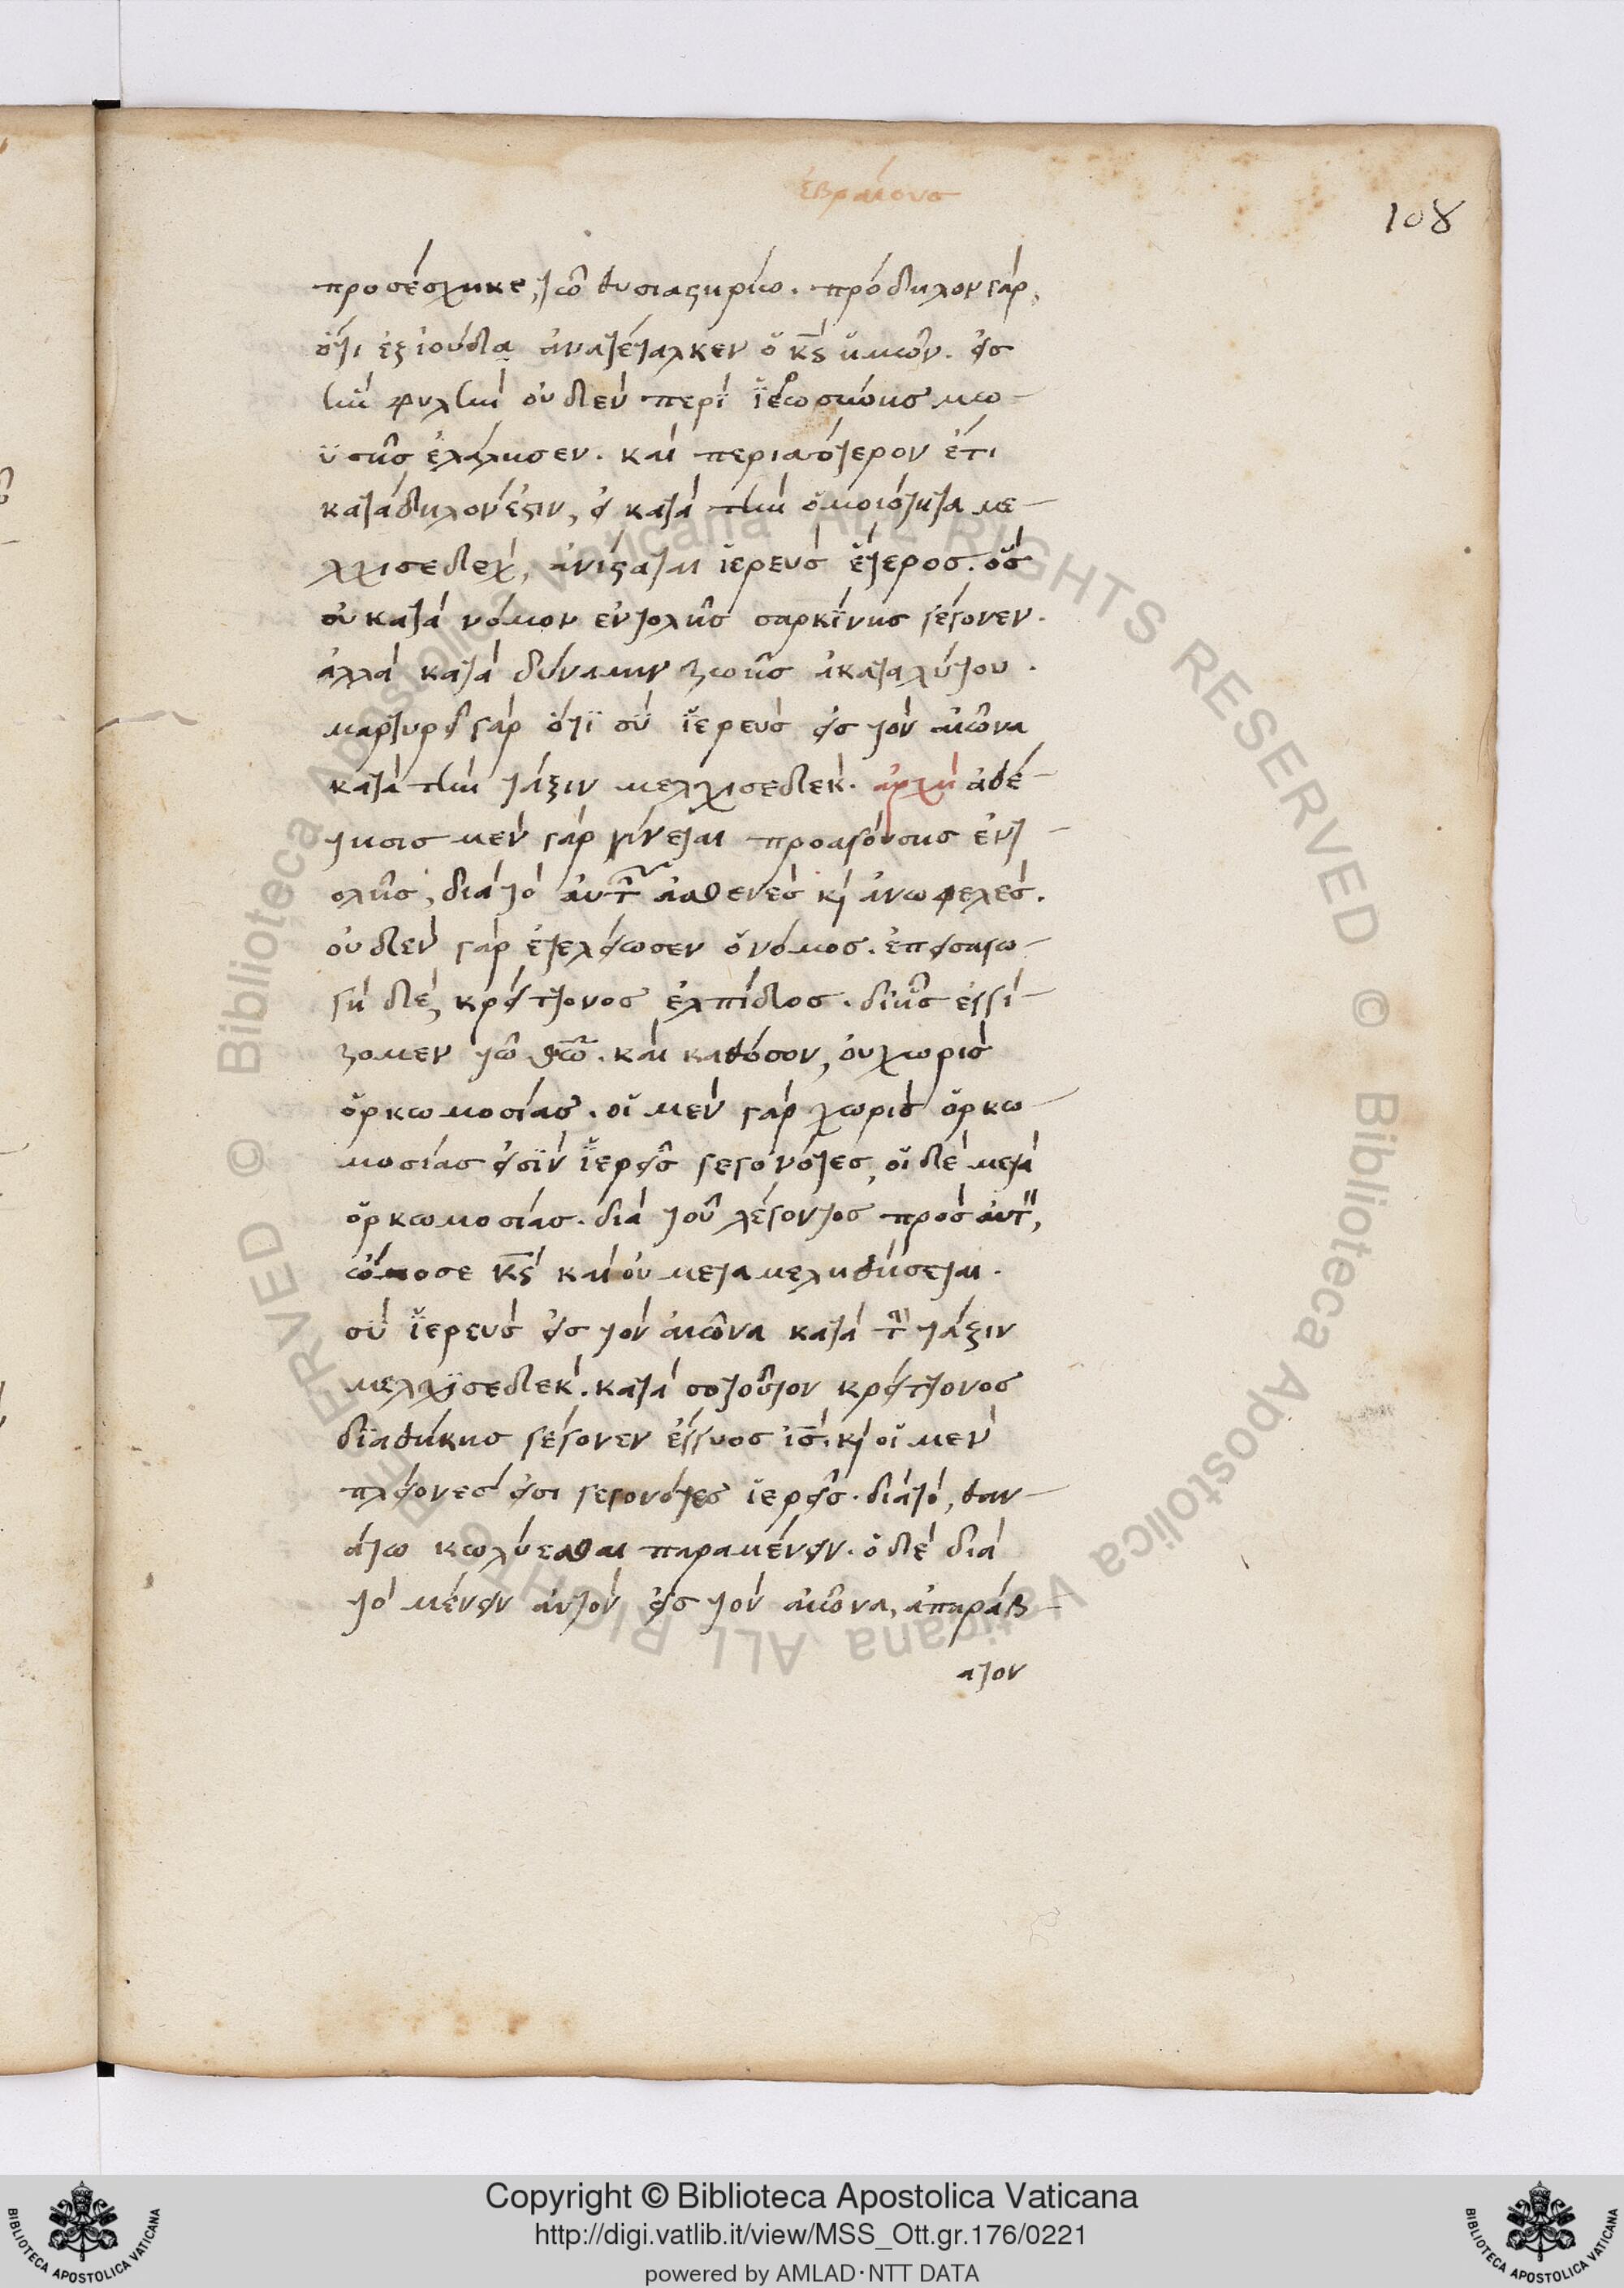 ἑβραίους
108
προσέσχηκε, τῶ θυσιαστηρίω. πρόδηλον γάρ,
ὅτι ἐξ ἰούδα ἀνατέταλκεν ὁ κς ἡμῶν. εἰς
ἣν φυλὴν οὐδὲν περὶ ἱερωσύνης μω-
ϋσῆς ἐλάλησεν. καὶ περισσότερον ἔτι
κατάδηλον ἐστιν, εἰ κατὰ τὴν ὁμοιότητα με-
λχισεδεχ, ἀνίσταται ἱερεὺς ἕτερος. ὃς
οὐ κατὰ νόμον ἐντολῆς σαρκίνης γέγονεν.
ἀλλὰ κατὰ δύναμιν ζωῆς ἀκαταλύτου.
μαρτυρεῖ γὰρ ὅτι σὺ ἱερεὺς εἰς τὸν αἰῶνα
κατὰ τὴν τάξιν μελχισεδεκ. ἀρχὴ ἀθέ-
τησις μὲν γὰρ γίνεται προαγούσης ἐντ-
ολῆς, διὰ τὸ αὐτῆς ἀσθενὲς κὶ ἀνωφελές.
οὐδὲν γὰρ ἐτελείωσεν ὁ νόμος. ἐπεισαγω-
γὴ δὲ, κρείττονος ἐλπίδος. δι ἧς ἐγγί-
ζομεν τῶ θῶ. καὶ καθόσον, οὐ χωρὶς
ὁρκωμοσίας. οἱ μὲν γὰρ χωρὶς ὁρκω-
μοσίας εἰσὶν ἱερεῖς γεγονότες, οἱ δὲ μετὰ
ὁρκωμοσίας. διὰ τοῦ λέγοντος πρὸς αὐτ,
ὤμοσε κς καὶ οὐ μεταμεληθήσεται.
σὺ ἱερεὺς εἰς τὸν αἰῶνα κατὰ τὴν τάξιν
μελχισεδεκ. κατὰ τοσοῦτον κρείττονος
διαθήκης γέγονεν ἔγγυος ις. κὶ οἱ μὲν
πλείονες εἰσι γεγονότες ἱερεῖς. διὰ τὸ, θαν-
άτω κωλύεσθαι παραμένειν. ὁ δὲ διὰ
τὸ μένειν αὐτὸν εἰς τὸν αἰῶνα, ἀπαράβ-
ατον
Copyright © Biblioteca Apostolica Vaticana
http://digi.vatlib.it/view/MSS_Ott.gr.176/0221
powered by AMLAD·NTT DATA